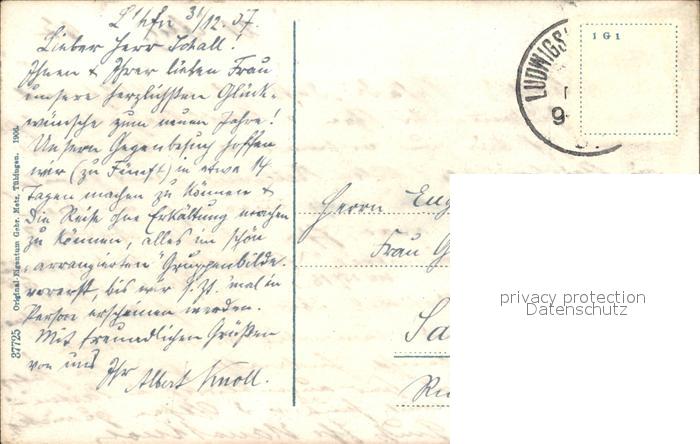 L'hfn 31/12.07.
Lieber Herr Schall!
Ihnen & Ihrer lieben Frau
unsere herzlichsten Glück-
wünsche zum neuen Jahre!
Unsern Gegenbesuch hoffen
wir (zu Fünft) in etwa 14
Tagen machen zu können &
die Reise ohne Erkältung machen
zu können, alles im schön
„arrangierten" Gruppenbilde.
vorerst, bis wir s. Zt. mal in
Person erscheinen werden.
Mit freundlichen Grüßen
von uns Ihr Albert Knoll.
Original-Eigentum Gebr. Metz, Tübingen. 1906.
37725
LUDWIGS
1 G 1
Herrn Eug
Frau G
Sa
privacy protection
Datenschutz